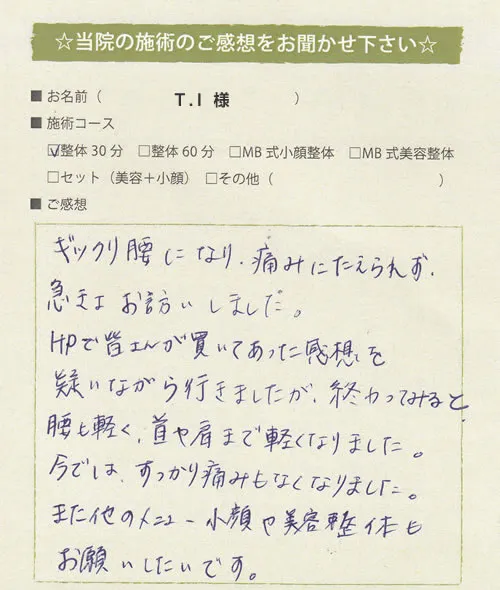 ☆当院の施術のご感想をお聞かせ下さい☆
■お名前（ T.I 様 ）
■施術コース
☑整体 30 分 □整体 60 分 □MB 式小顔整体 □MB 式美容整体
□セット（美容＋小顔） □その他（ ）
■ご感想
ギックリ腰になり、痛みにたえられず、
急きょお訪いしました。
HPで皆さんが買いてあった感想を
疑いながら行きましたが、終わってみると
腰も軽く、首や肩まで軽くなりました。
今では、すっかり痛みもなくなりました。
また他のメニュー小顔や美容整体も
お願いしたいです。